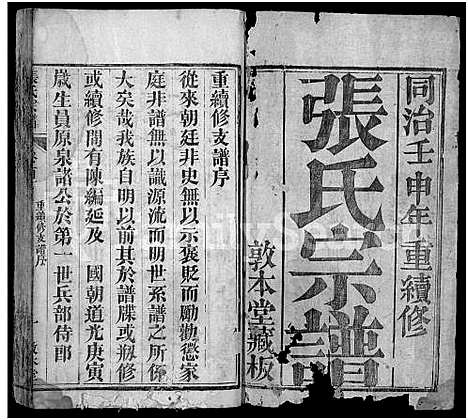 同治壬申年重續修
張氏宗譜
敦本堂藏板
重續修支譜序
從來朝廷非史無以示褒貶而勵勸懲家
庭非譜無以識源流而明世系譜之所係
大矣哉我族自明以前其於譜牒或炳修
或續修間有陳編延及 國朝道光庚寅
歲生員原泉諸公於第一世兵部侍郎
重續修支譜序
一